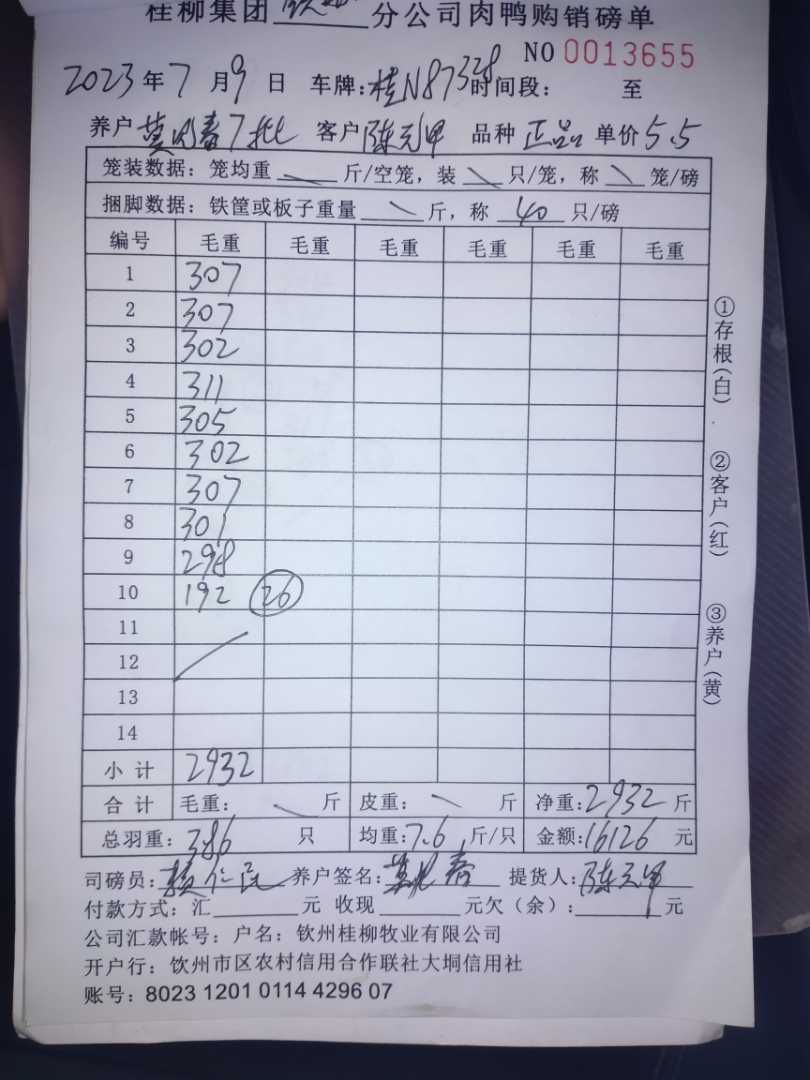 桂柳集团 钦州 分公司肉鸭购销磅单
NO 0013655
2023年7月9日 车牌:桂N87328 时间段: 至
养户 莫 春7批 客户 陈元甲 品种 正品 单价 5.5
笼装数据: 笼均重 斤/空笼, 装 只/笼, 称 笼/磅
捆脚数据: 铁筐或板子重量 斤, 称 40 只/磅
编号 毛重 毛重 毛重 毛重 毛重 毛重
1 307
2 307
3 302
4 311
5 305
6 302
7 307
8 301
9 298
10 192 26
11
12
13
14
小计 2932
合计 毛重: 斤 皮重: 斤 净重:2932 斤
总羽重: 386 只 均重:7.6 斤/只 金额:16126 元
司磅员: 仁民 养户签名: 莫 春 提货人: 陈元甲
付款方式: 汇 元 收现 元欠(余): 元
公司汇款帐号: 户名: 钦州桂柳牧业有限公司
开户行: 钦州市区农村信用合作联社大垌信用社
账号: 8023 1201 0114 4296 07
①存根(白)
②客户(红)
③养户(黄)